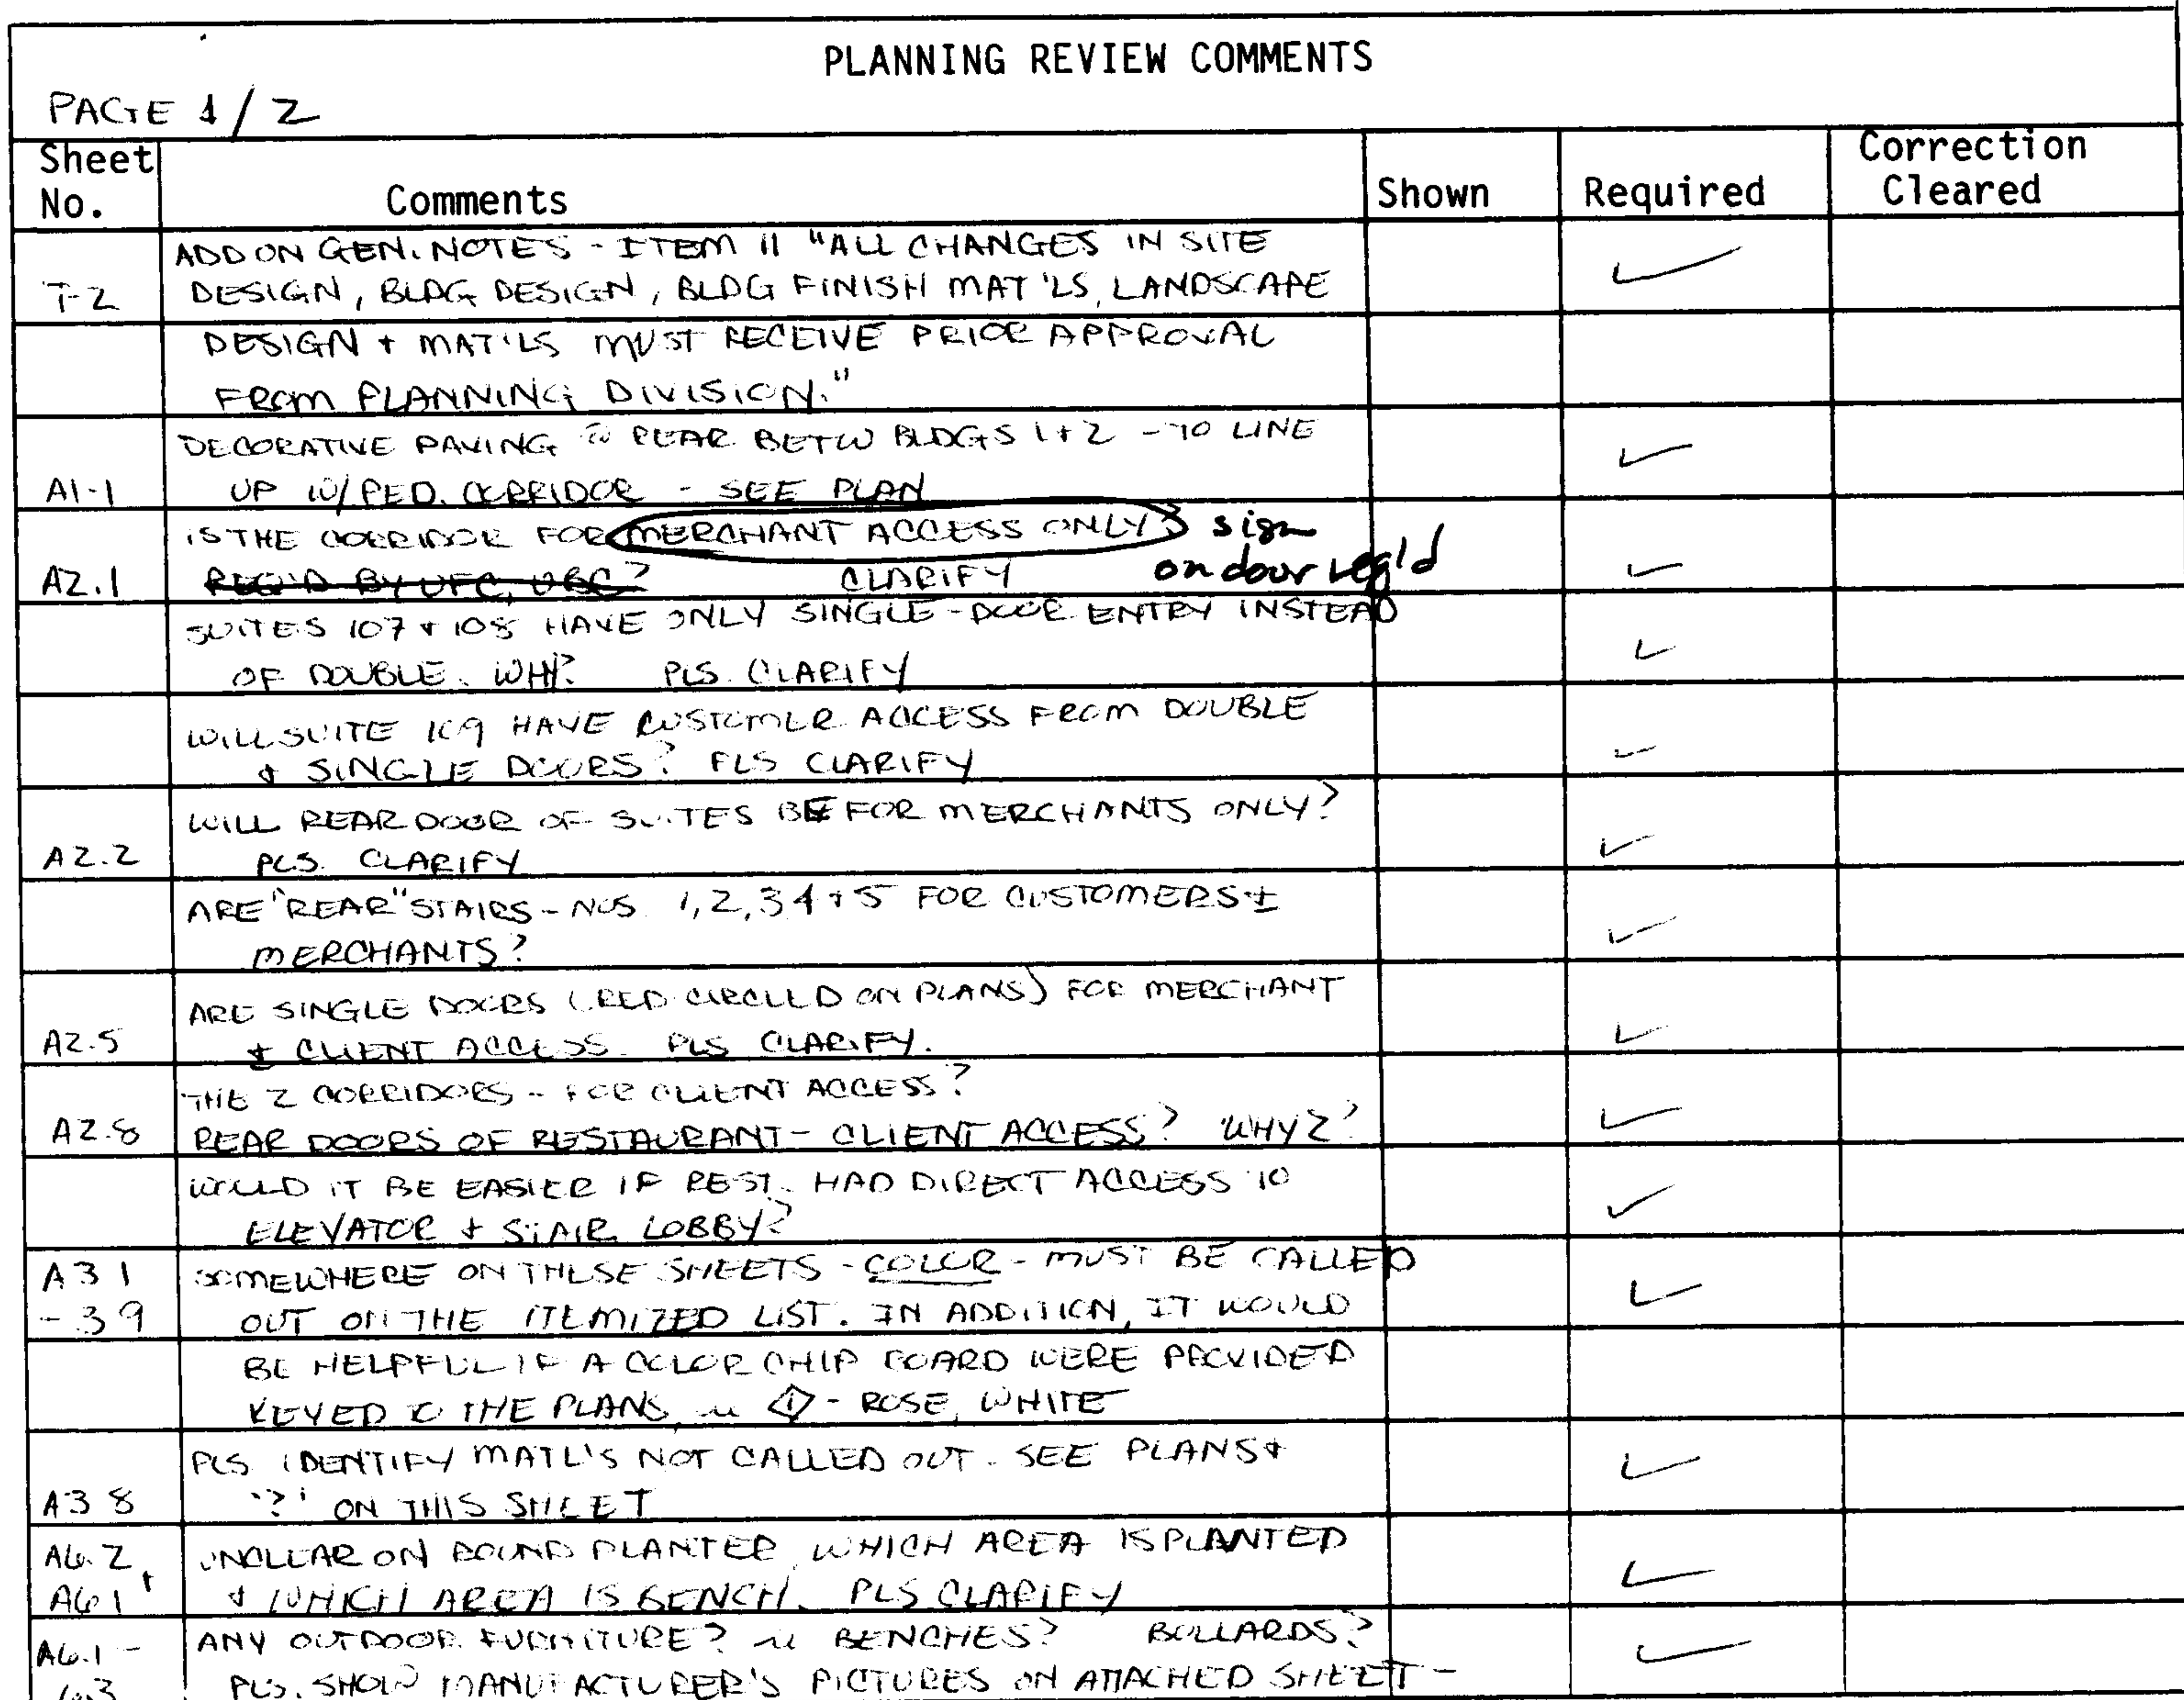 PLANNING REVIEW COMMENTS
PAGE 1/2
Sheet No. Comments Shown Required Correction Cleared
ADD ON GEN. NOTES - ITEM 11 "ALL CHANGES IN SITE
T-2 DESIGN, BLDG DESIGN, BLDG FINISH MAT'LS, LANDSCAPE
DESIGN + MAT'LS MUST RECEIVE PRIOR APPROVAL
FROM PLANNING DIVISION."
DECORATIVE PAVING @ REAR BETW BLDGS 1+2 - TO LINE
A1-1 UP W/PED. CORRIDOR - SEE PLAN
IS THE CORRIDOR FOR MERCHANT ACCESS ONLY? sign
A2.1 REQ'D BY UFC, UBC? CLARIFY on door req'd
SUITES 107 + 108 HAVE ONLY SINGLE-DOOR ENTRY INSTEAD
OF DOUBLE. WHY? PLS. CLARIFY
WILL SUITE 109 HAVE CUSTOMER ACCESS FROM DOUBLE
+ SINGLE DOORS? PLS CLARIFY
WILL REAR DOOR OF SUITES BE FOR MERCHANTS ONLY?
A2.2 PLS. CLARIFY
ARE "REAR" STAIRS - NOS. 1, 2, 3 4 + 5 FOR CUSTOMERS +
MERCHANTS?
ARE SINGLE DOORS (RED CIRCLED ON PLANS) FOR MERCHANT
A2.5 + CLIENT ACCESS. PLS CLARIFY.
THE 2 CORRIDORS - FOR CLIENT ACCESS?
A2.8 REAR DOORS OF RESTAURANT - CLIENT ACCESS? WHY 2?
WOULD IT BE EASIER IF REST. HAD DIRECT ACCESS TO
ELEVATOR + STAIR LOBBY?
A3 1 SOMEWHERE ON THESE SHEETS - COLOR - MUST BE CALLED
- 3 9 OUT ON THE ITEMIZED LIST. IN ADDITION, IT WOULD
BE HELPFUL IF A COLOR CHIP BOARD WERE PROVIDED
KEYED TO THE PLANS, 1 - ROSE, WHITE
PLS. IDENTIFY MATL'S NOT CALLED OUT - SEE PLANS +
A3 8 '?' ON THIS SHEET
A6.2, UNCLEAR ON ROUND PLANTER, WHICH AREA IS PLANTED
+ A6 1 + WHICH AREA IS BENCH. PLS CLARIFY
A6.1 - ANY OUTDOOR FURNITURE? BENCHES? BOLLARDS?
6.3 PLS. SHOW MANUFACTURER'S PICTURES ON ATTACHED SHEET -